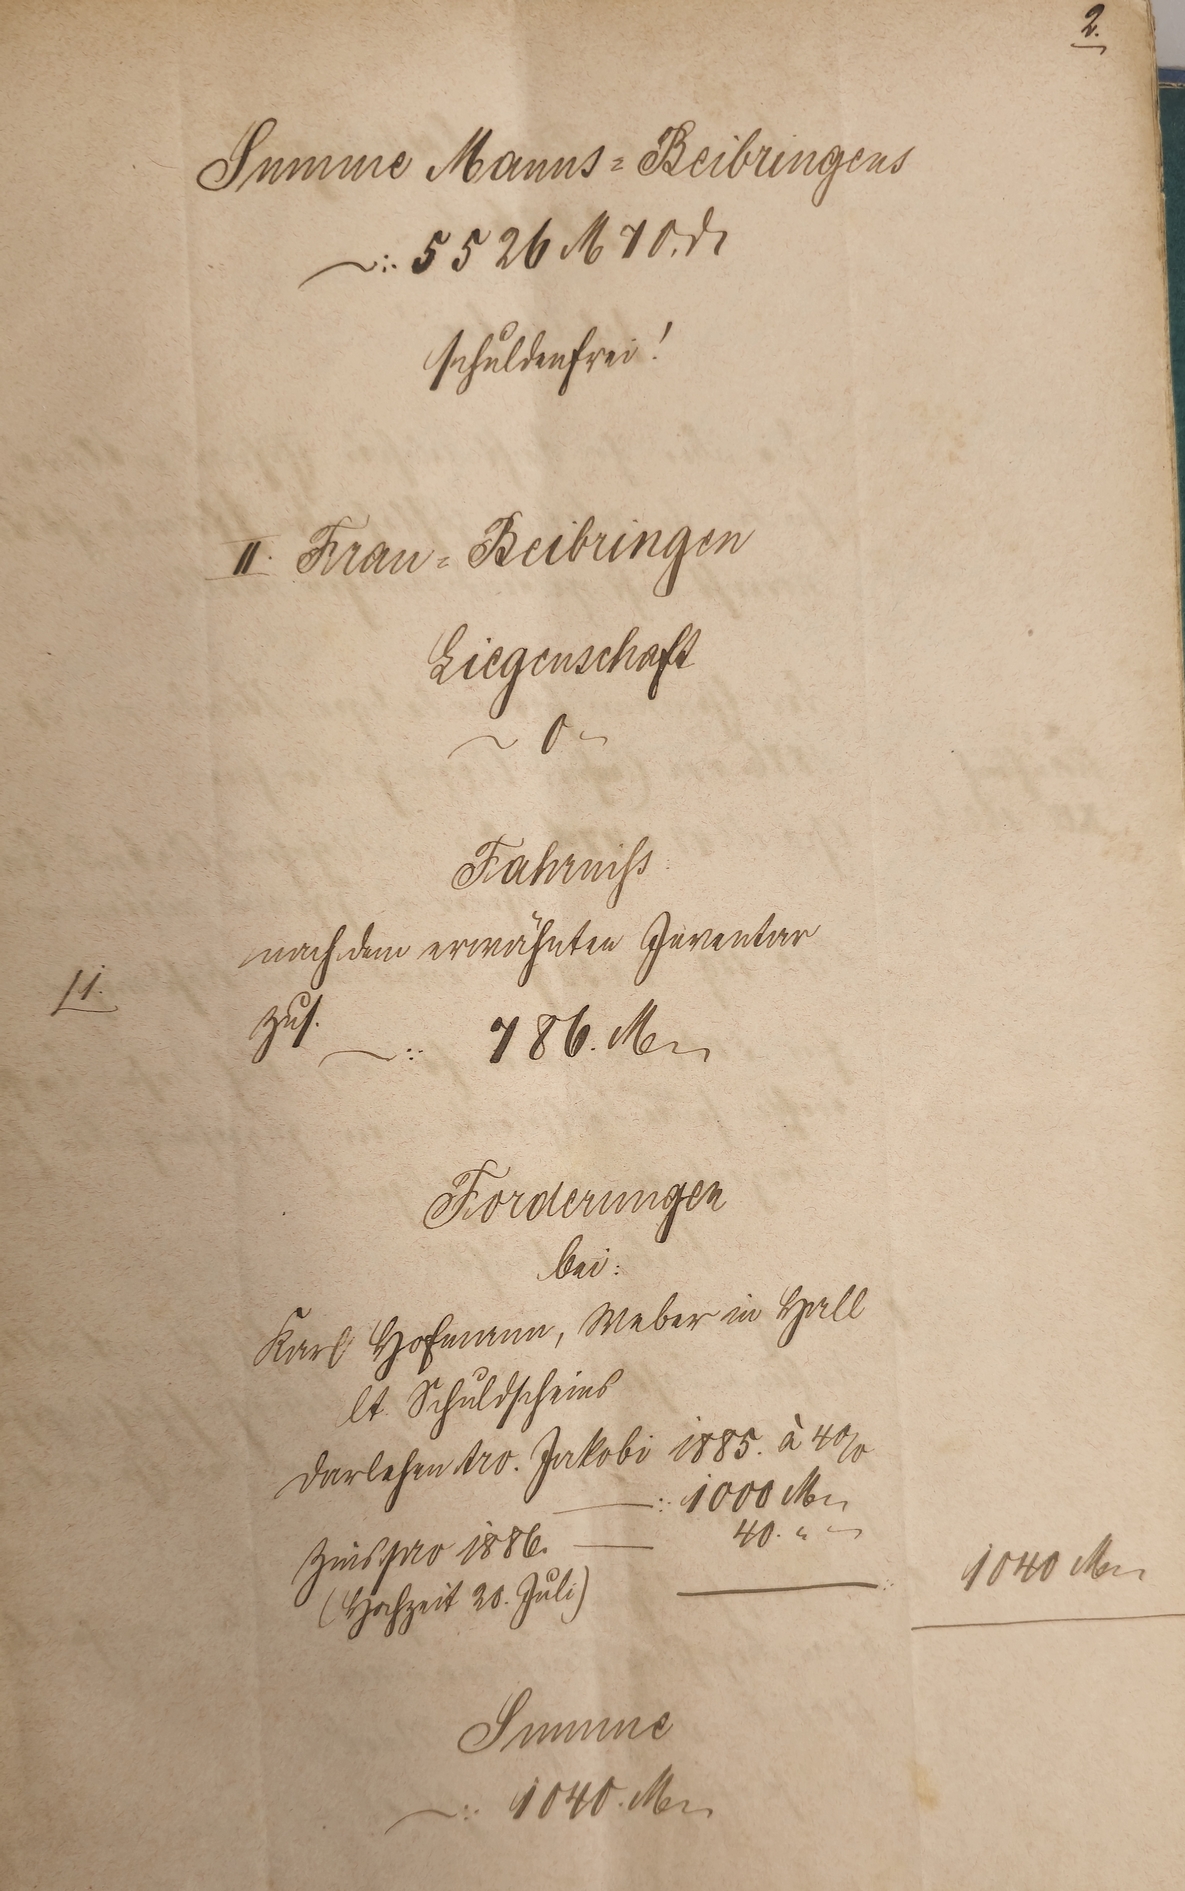 2.
Summe Manns=Beibringens
—: 5526 M 70. ₰
schuldenfrei!
II. Frau=Beibringen
Liegenschaft
~ 0 ~
Fahrniß
nach dem erwähnten Inventar
11.
zus. —: 786. M
Forderungen
bei:
Karl Hofmann, Weber in Hall
lt. Schuldscheins
Darlehen tro. Jakobi 1885. à 4%
—: 1000 M
Zins pro 1886. — 40. " "
1040 M
(Hochzeit 20. Juli)
Summe
—: 1040. M